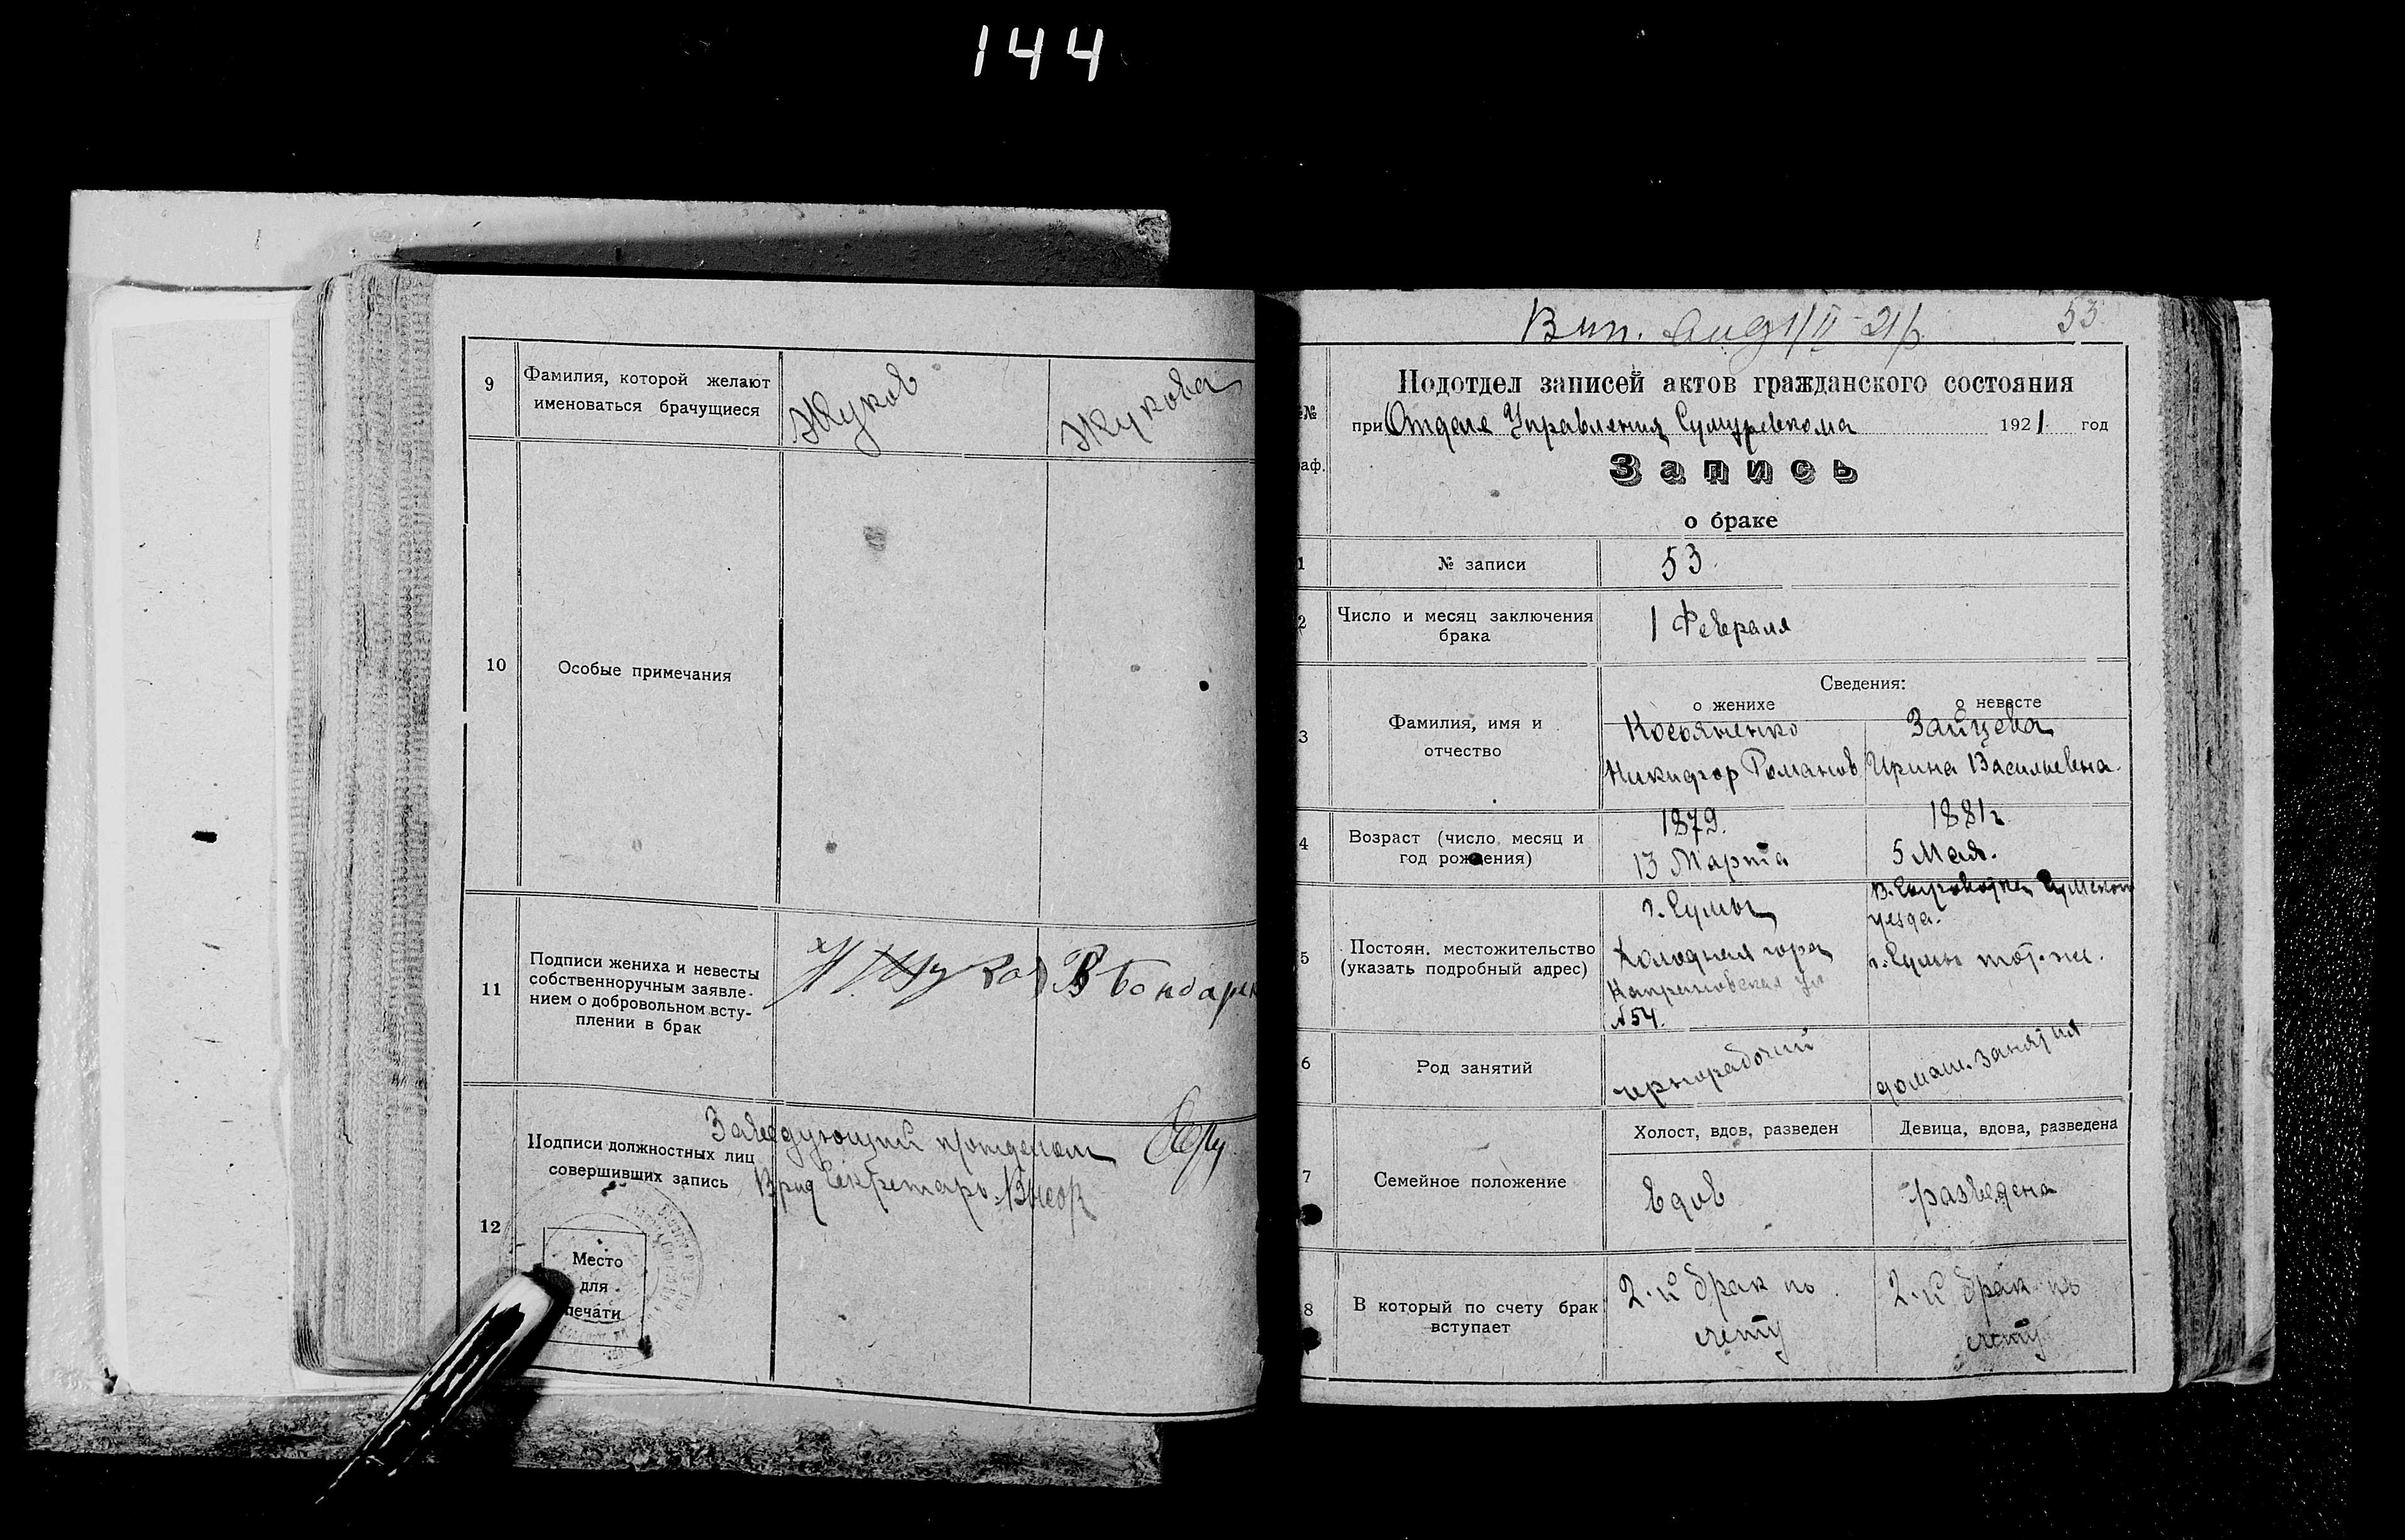 144
9
Фамилия, которой желают
именоваться брачущиеся
Жуков
Жукова
10
Особые примечания
11
Подписи жениха и невесты
собственноручным заявле-
нием о добровольном всту-
плении в брак
Жуков
В Бондарен
12
Подписи должностных лиц
совершивших запись
Заведующий
Врид Секретарь
Место
для
печати
Вип.
53
Подотдел записей актов гражданского состояния
№
при Отделе Управления Сумуревкома 1921 год
аф.
Запись
о браке
1
№ записи
53.
2
Число и месяц заключения
брака
1 Февраля
Сведения:
о женихе
о невесте
3
Фамилия, имя и
отчество
Косьяненко
Никифор Романов
Зайцева
Ирина Васильевна.
4
Возраст (число, месяц и
год рождения)
1879.
13 Марта
1881г
5 Мая.
5
Постоян. местожительство
(указать подробный адрес)
г. Сумы
Холодная гора
ул
№54.
Сумского
уезда.
г. Сумы
6
Род занятий
чернорабочий
домаш. занятия
7
Семейное положение
Холост, вдов, разведен
Девица, вдова, разведена
вдов
разведена
8
В который по счету брак
вступает
2-й брак по
счету
2-й брак по
счету